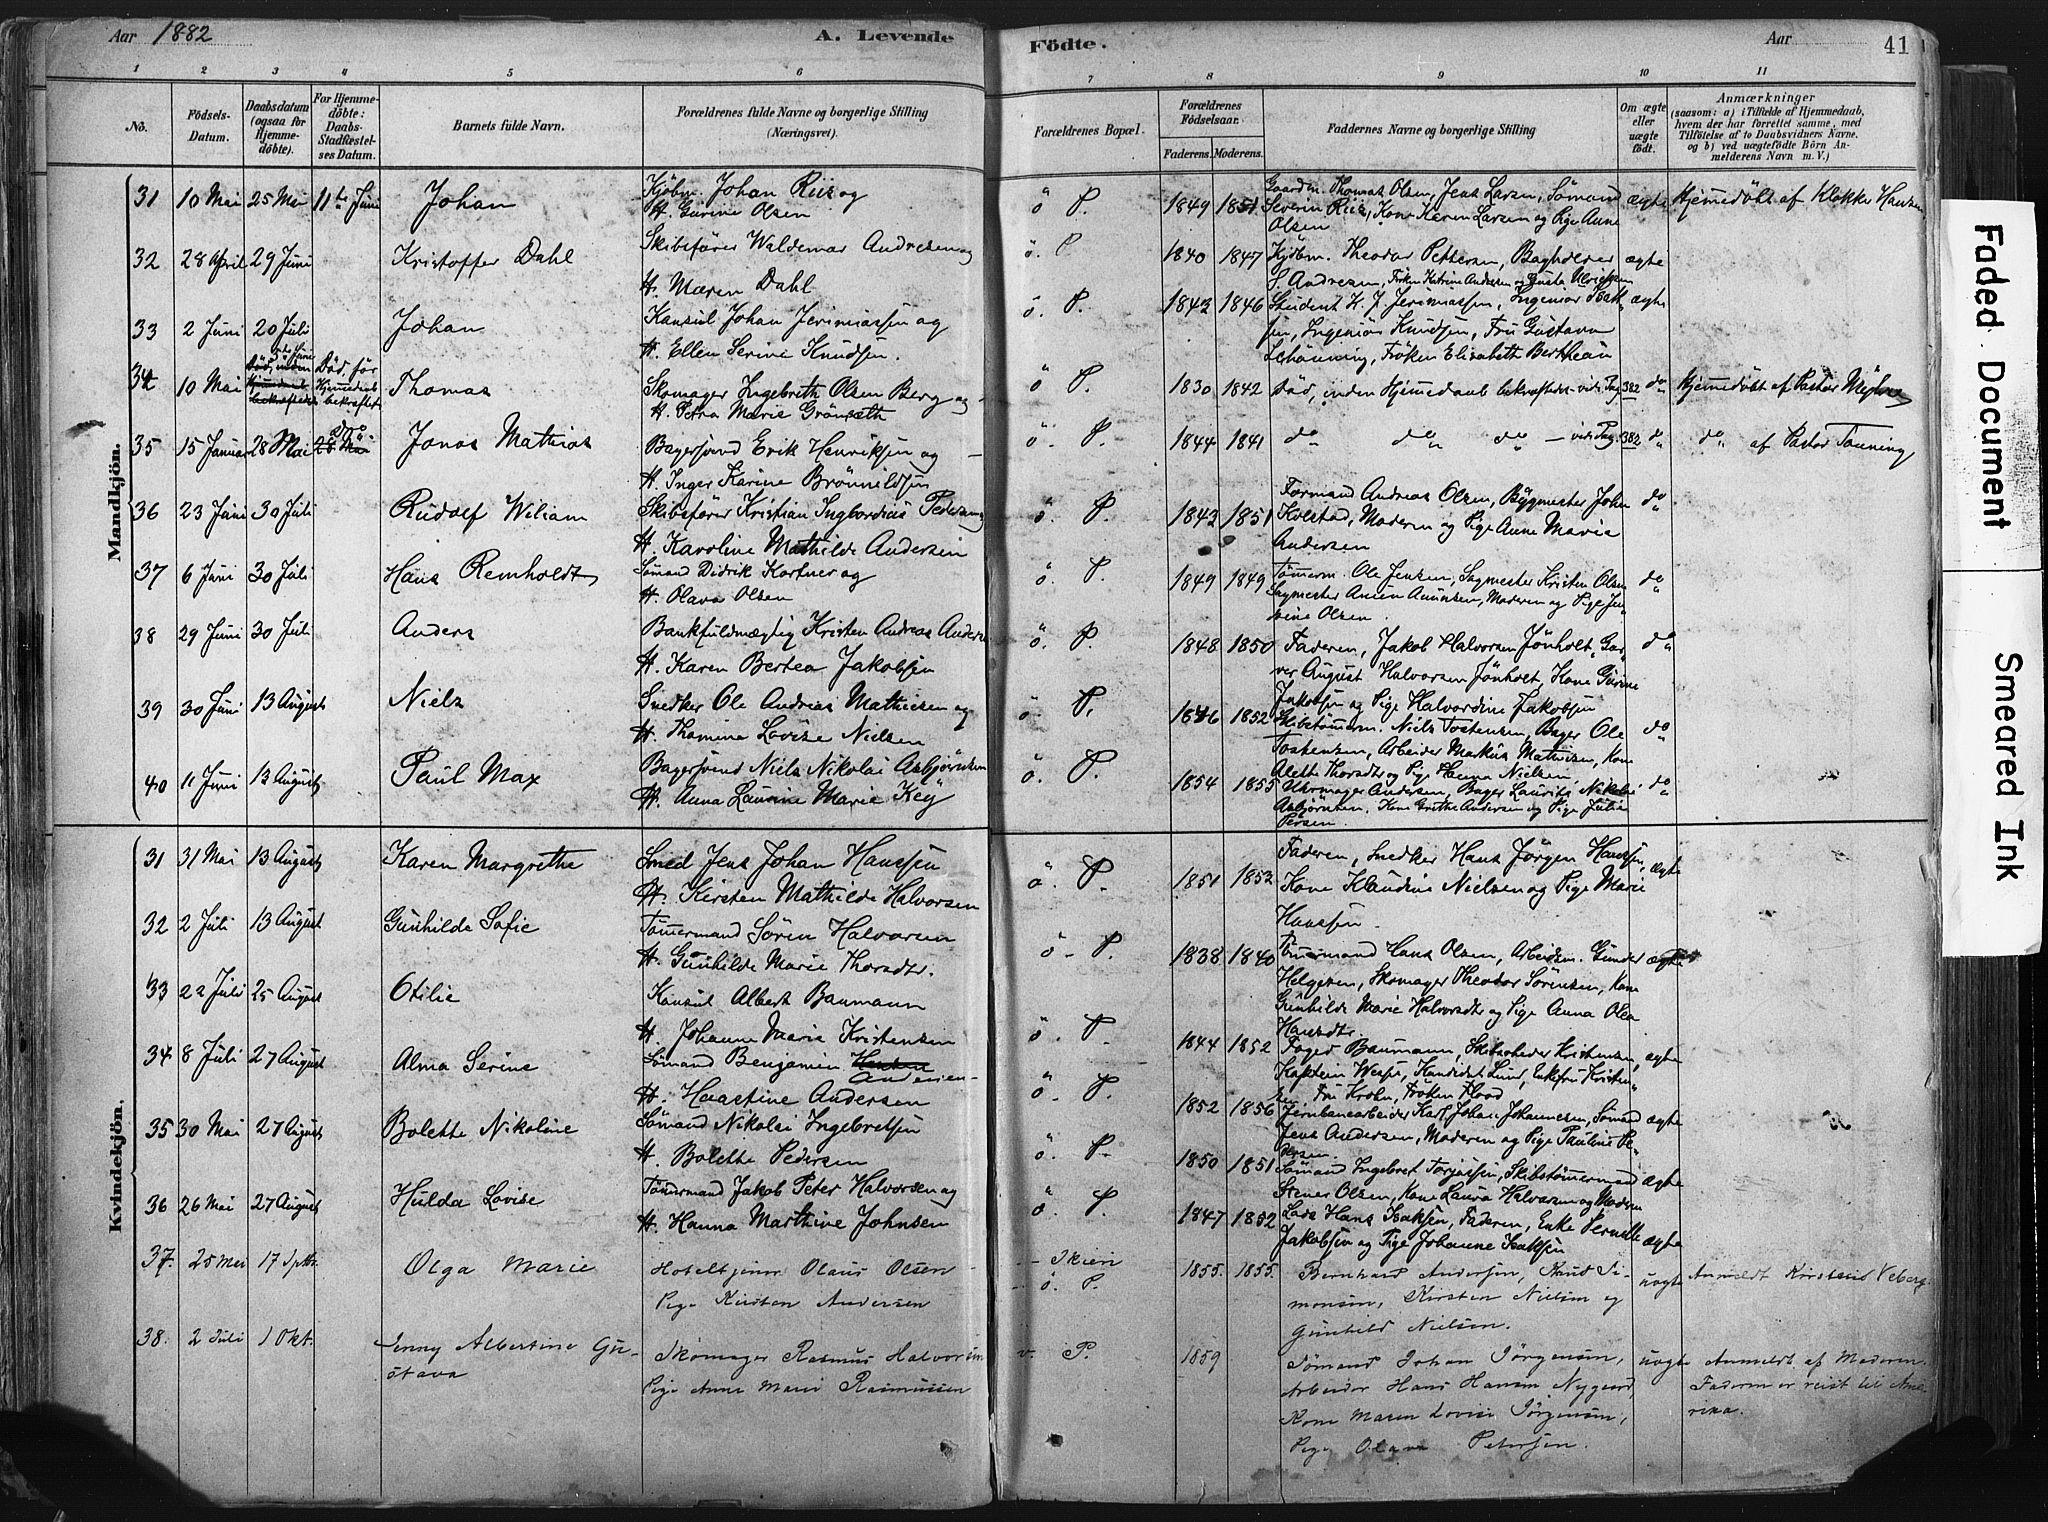 Aar 1882
A. Levende
Födte.
Aar
41
1 2 3 4 5 6 7 8 9 10 11
No.
Födsels-Datum.
Daabsdatum (ogsaa for Hjemme-döbte).
For Hjemme-döbte: Daabs-Stadfæstel-ses Datum.
Barnets fulde Navn.
Forældrenes fulde Navne og borgerlige Stilling (Næringsvei).
Forældrenes Bopæl.
Forældrenes Födselsaar.
Faderens. Moderens.
Faddernes Navne og borgerlige Stilling
Om ægte eller uægte födt.
Anmærkninger
(saasom: a) i Tilfælde af Hjemmedaab,
hvem der har forrettet samme, med
Tilföielse af to Daabsvidners Navne,
og b) ved uægtefödte Börn An-
melderens Navn m. V.)
Mandkjön.
31 10 Mai 25 Mai 11te Juni Johan Kjøbm. Johan Riis og
H. Gurine Olsen
ö P. 1849 1851 Gaardm. Thomas Olsen, Jens Larsen, Sømand
Severin Riis, Kone Karen Larsen og Pige Anne
Olsen
ægte Hjemmedöbt af Klokker Hansen
32 28 April 29 Juni Kristoffer Dahl Skibsfører Waldemar Andresen og
H. Maren Dahl
ö. P 1840 1847 Kjøbm. Theodor Pettersen, Bagholder
S. Andresen, Frkn Katrine Andersen og Gusta Ulriksen
ægte
33 2 Juni 20 Juli Johan Konsul Johan Jeremiassen og
H. Ellen Serine Knudsen.
ö. P. 1843 1846 Student H. J. Jeremiassen, Ingeniør Isak
sen, Ingeniør Knudsen, Fru Gustava
Schönning, Frøken Elisabeth Bertheau
ægte
34 10 Mai Død før Hjemmedaab bekræftet Thomas Skomager Ingebreth Olsen Berg og
H. Petra Marie Grönsæth
ö P. 1830 1842 Død, inden Hjemmedaab bekræftedes vide Pag. 382 do Hjemmedöbt af Pastor
35 15 Januar 28 Mai Jonas Mathias Bagersvend Erik Henriksen og
H. Inger Karine Brönnildsen
ö. P. 1844 1841 do do do – vide Pag. 382 do do af Pastor Tanning
36 23 Juni 30 Juli Rudolf Wiliam Skibsfører Kristian Ingvordius Pedersen
H. Karoline Mathilde Andersen
ö. P. 1843 1851 Formand Andreas Olsen, Bygmester Johan
Kolstad, Moderen og Pige Anne Marie
Andersen
do
37 6 Juni 30 Juli Hans Remholdt Sömand Didrik Kortner og
H. Olava Olsen
ö. P. 1849 1849 Tømerm. Ole Jensen, Sagmester Kristen Olsen
Sagmester Anun Anunsen, Moderen og Pige Jen
sine Olsen
do
38 29 Juni 30 Juli Anders Bankfuldmægtig Kristen Andreas Anders
H. Karen Bertea Jakobsen
ö. P. 1848 1850 Faderen, Jakob Halvorsen Jönholt, Gar
ver August Halvorsen Jönholt, Kone Gurine
Jakobsen og Pige Halvordine Jakobsen
do
39 30 Juni 13 August Niels Snedker Ole Andreas Mathiesen og
H. Thomine Lovise Nielsen
ö. P. 1846 1852 Skibstömmerm. Niels Tostensen, Bager Ole
Tostensen, Arbeider Markus Mathiesen, Kone
Alette Thorsdtr og Pige Hanna Nielsen
do
40 11 Juni 13 August Paul Max Bagersvend Niels Nikolai Asbjörnsen
H. Anna Laurine Marie Keÿ
ö. P. 1854 1855 Uhrmager Andersen, Bager Laurits Nikolai
Asbjörnsen. Kone Grethe Andersen og Pige Julie
Persen.
do
Kvindekjön.
31 31 Mai 13 August Karen Margrethe Smed Jens Johan Hanssen
H. Kirsten Mathilde Halvorsen
ö. P. 1851 1853 Faderen, Snedker Hans Jörgen Hanssen,
Kone Klaudine Nielsen og Pige Marie
Hanssen.
ægte
32 2 Juli 13 August Gunhilde Sofie Tömmermand Sören Halvorsen
H. Gunhilde Marie Thorsdtr.
ö. P. 1838 1840 Tömmermand Hans Olsen, Arbeidsm. Gunder
Helgesen, Skomager Theodor Sörensen, Kone
Gunhilde Marie Halvorsdtr og Pige Anna Olea
Hansdtr
ægte
33 22 Juli 25 August Otilie Konsul Albert Baumann
H. Johanne Marie Kristensen
ö. P. 1844 1852 Foged Baumann, Skibsreder Kristensen,
Kaptein Wesse, Kandidat Lund, Enkefru Kristen
sen Fru Krohn, Frøken Flood
ægte
34 8 Juli 27 August Alma Serine Sömand Benjamin Andersen
H. Haastine Andersen
ö P. 1852 1856 Jernbanearbeider Karl Johan Johannesen, Sömand
Jens Andersen, Moderen og Pige Pauline Pe
dersen.
ægte
35 30 Mai 27 August Bolette Nikoline Sömand Nikolai Ingebretsen
H. Bolette Pedersen
ö. P. 1850 1851 Sömand Ingebret Torjussen, Skibstömmermand
Stener Olsen, Kone Laura Halvorsen og Moderen
ægte
36 26 Mai 27 August Hulda Lovise Tömmermand Jakob Peter Halvorsen og
H. Hanna Marthine Johnsen
ö. P. 1847 1852 Lods Hans Isaksen, Faderen, Enke Pernille
Jakobsen og Pige Johanne Isaksen
ægte
37. 25 Mai 17 Sptbr. Olga Marie Hoteltjener Olaus Olsen
Pige Kirsten Andersen
Skien
ö. P.
1855. 1855. Bernhard Andersen, Knud Si-
monsen, Kirsten Nielsen og
Gunhild Nielsen.
uægte Anmeldt Kirstine Veberg.
38. 2 Juli 1 Okt. Jenny Albertine Gu-
stava
Skomager Rasmus Halvorsen
Pige Anne Marie Rasmussen
v. P. 1859 Sömand Johan Jörgensen,
Arbeider Hans Hansen Nygaard,
Kone Maren Lovise Jörgensen,
Pige Olava Petersen.
uægte Anmeldt af Moderen.
Faderen er reist til Ame-
rika.
Faded Document
Smeared Ink